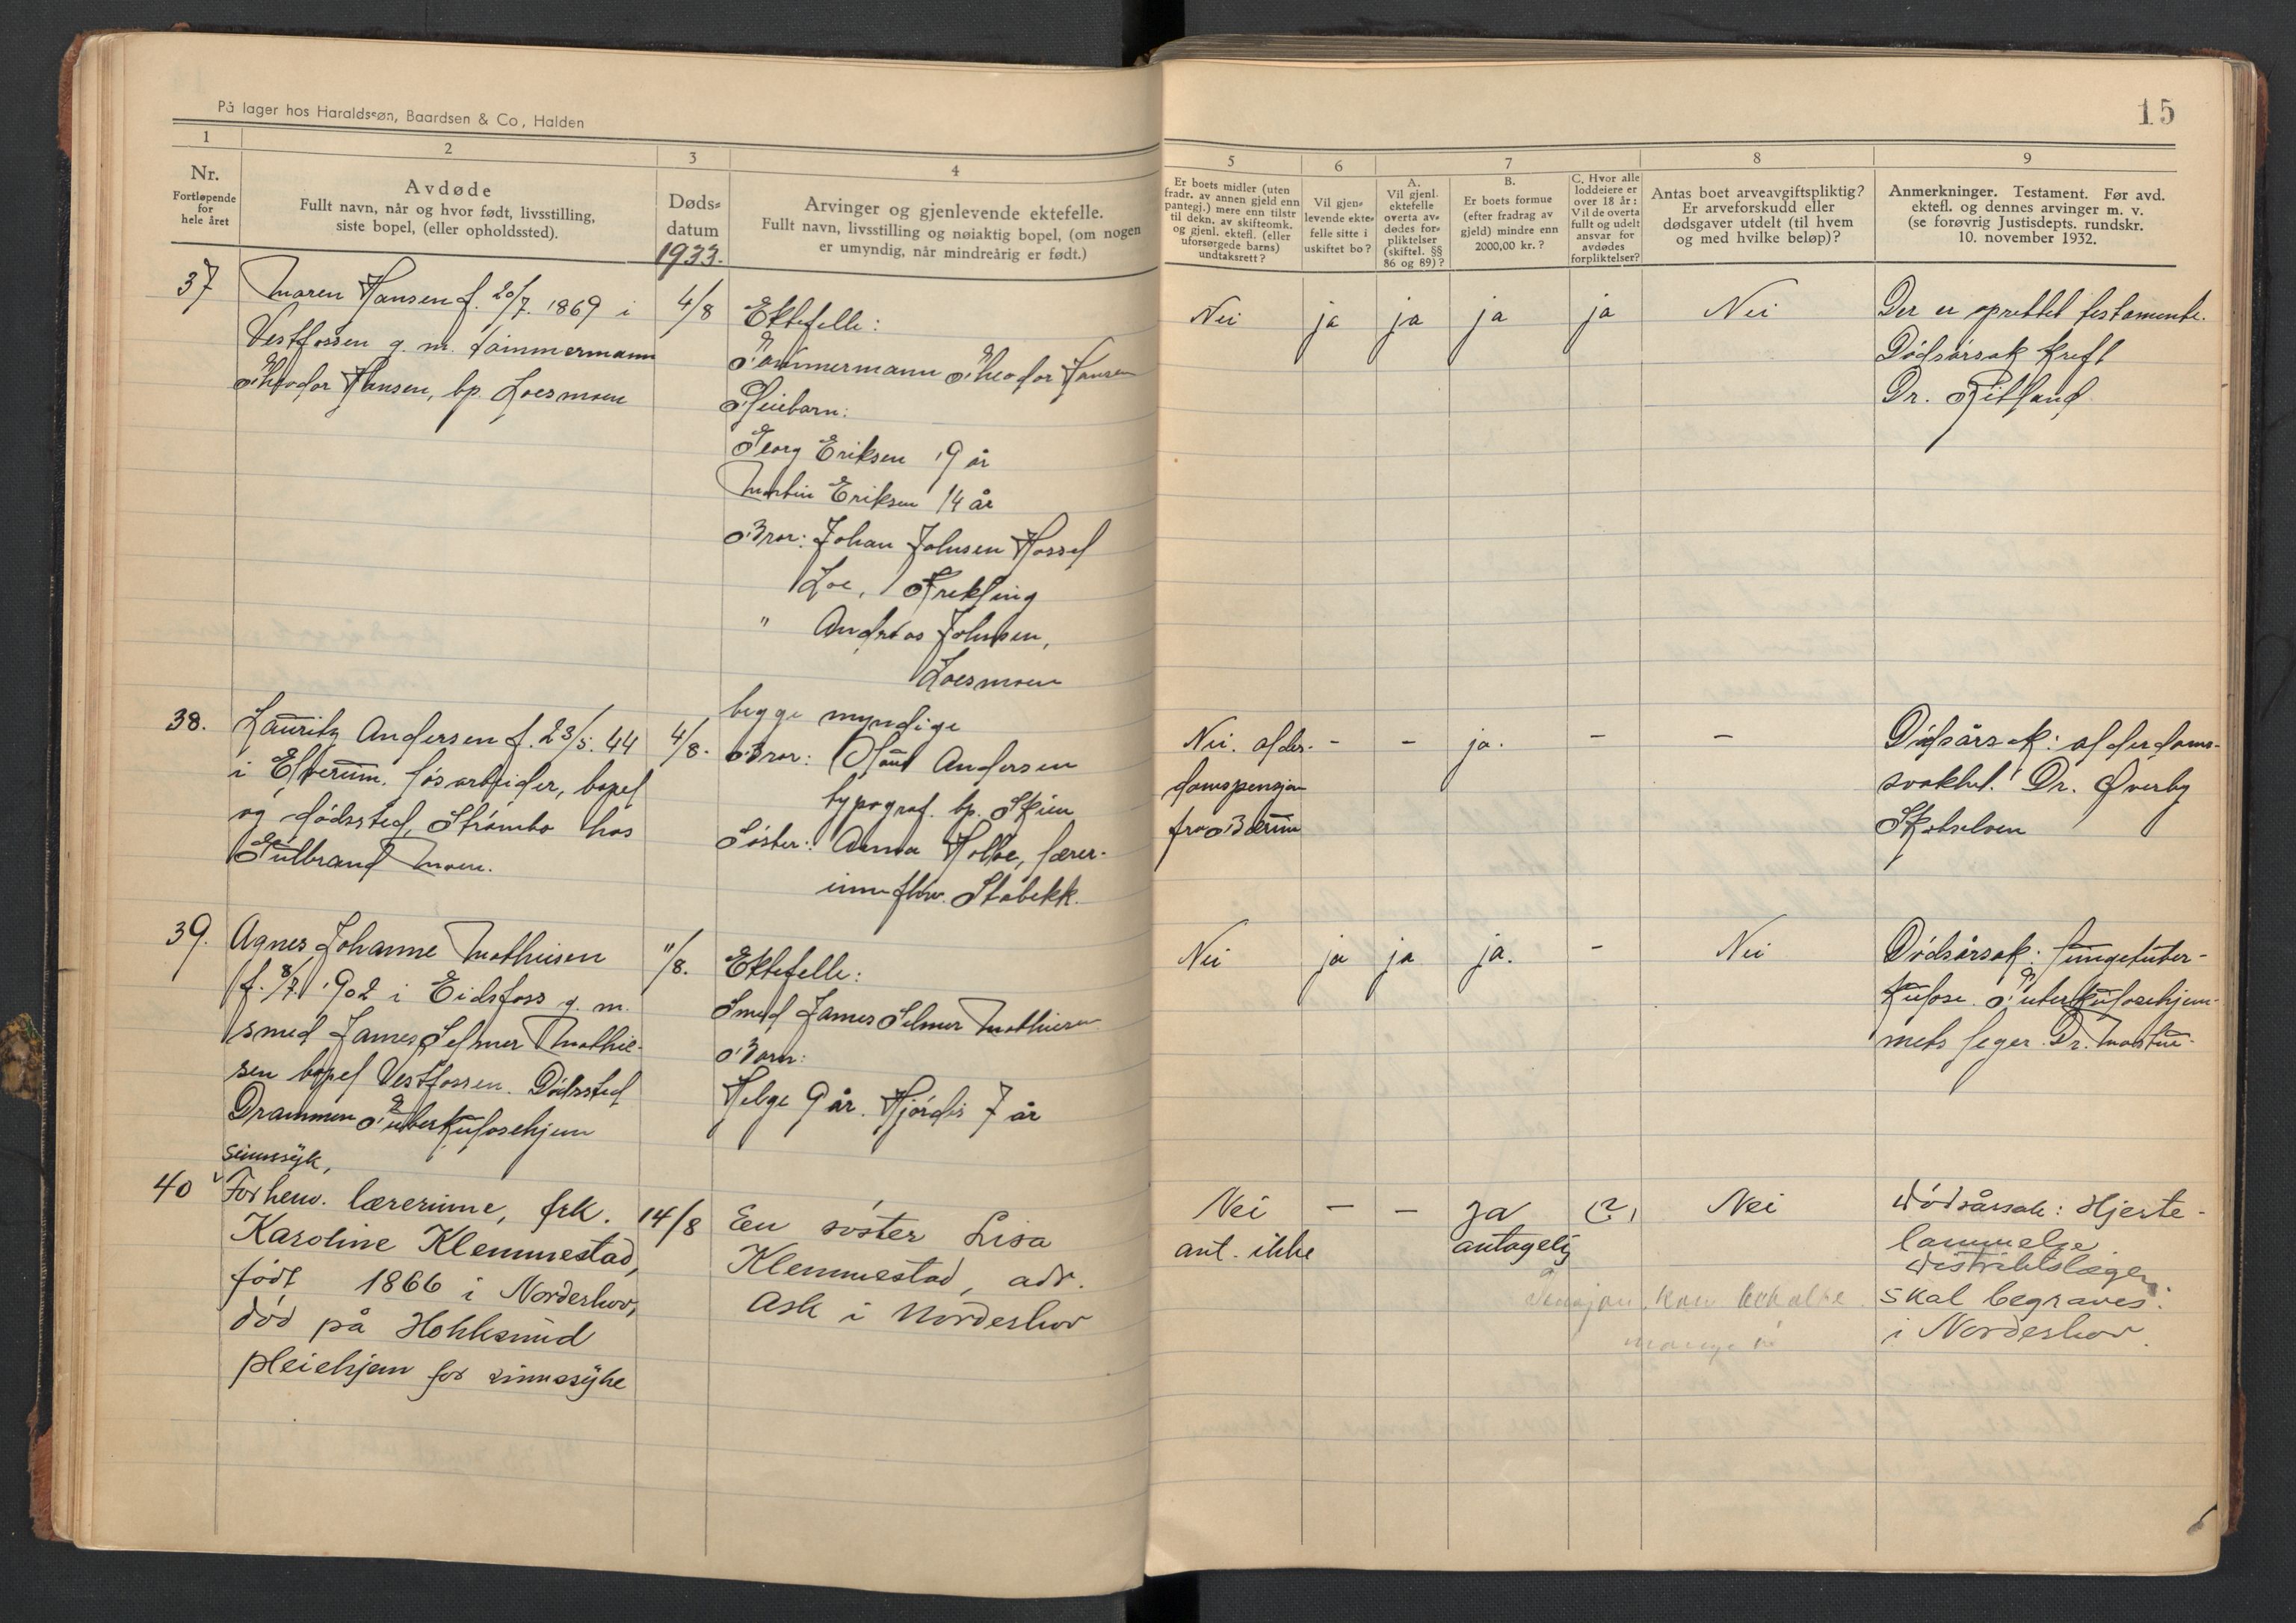 På lager hos Haraldssøn, Baardsen & Co, Halden
1
2
3
4
Nr.
Fortløpende
for
hele året
Avdøde
Fullt navn, når og hvor født, livsstilling,
siste bopel, (eller opholdssted).
Døds-
datum
1933.
Arvinger og gjenlevende ektefelle.
Fullt navn, livsstilling og nøiaktig bopel, (om nogen
er umyndig, når mindreårig er født.)
37
Maren Hansen f. 20/7. 1869 i
Vestfossen g. m. tømmermann
Theodor Hansen, bp. Loesmoen
4/8
Ektefelle:
Tømmermann Theodor Hansen
Pleiebarn:
Georg Eriksen 19 år
Martin Eriksen 14 år
Bror: Johan Johnsen Hassel
Loe, Frekling
" Andreas Johnsen,
Loesmoen
begge myndige
38.
Lauritz Andersen f. 23/5. 44
i Elverum. løsarbeider, bopel
og dødssted, Strømbo hos
Gulbrand Moen.
4/8.
Bror: Andersen
typograf. bp. Skien
Søster: Anna Holbe, lærer-
inne fhv. Stabekk.
39.
Agnes Johanne Mathiesen
f. 8/7. 1902 i Eidsfoss g. m.
smed James Selmer Mathie-
sen bopel Vestfossen. Dødssted
Drammen Tuberkulosehjem
11/8.
Ektefelle:
Smed James Selmer Mathiesen
Barn:
Helge 9 år. Hjørdis 7 år
sinnsyk,
40
Forhenv. lærerinne, frk.
Karoline Klemmestad,
født 1866 i Norderhov,
død på Hokksund
pleiehjem for sinnssyke
14/8
Een søster Lisa
Klemmestad, adr.
Ask i Norderhov
15
5
6
7
8
9
Er boets midler (uten
fradr. av annen gjeld enn
pantegj.) mere enn tilstr
til dekn. av skifteomk.
og gjenl. ektefl. (eller
uforsørgede barns)
undtaksrett?
Vil gjen-
levende ekte-
felle sitte i
uskiftet bo?
A.
Vil gjenl.
ektefelle
overta av-
dødes for-
pliktelser
(skiftel. §§
86 og 89)?
B.
Er boets formue
(efter fradrag av
gjeld) mindre enn
2000,00 kr.?
C. Hvor alle
loddeiere er
over 18 år:
Vil de overta
fullt og udelt
ansvar for
avdødes
forpliktelser?
Antas boet arveavgiftspliktig?
Er arveforskudd eller
dødsgaver utdelt (til hvem
og med hvilke beløp)?
Anmerkninger. Testament. Før avd.
ektefl. og dennes arvinger m. v.
(se forøvrig Justisdepts. rundskr.
10. november 1932.
Nei
ja
ja
ja
ja
Nei
Der er oprettet testamente.
Dødsårsak kreft
Dr. Ritland
Nei. alder-
domspensjon
fra Bærum
-
-
ja.
-
-
Dødsårsak: alderdoms-
svakhet. Dr. Øverby
Skotselven
Nei
ja
ja
ja.
-
Nei
Dødsårsak: lungetuber-
kulose. Tuberkulosehjem-
mets leger Dr.
Nei
ant. ikke
-
-
Ja
antagelig
(?)
Nei
Dødsårsak: Hjerte-
lammelse
distriktslægen
skal begraves
i Norderhov.
Pensjon, kan
mange